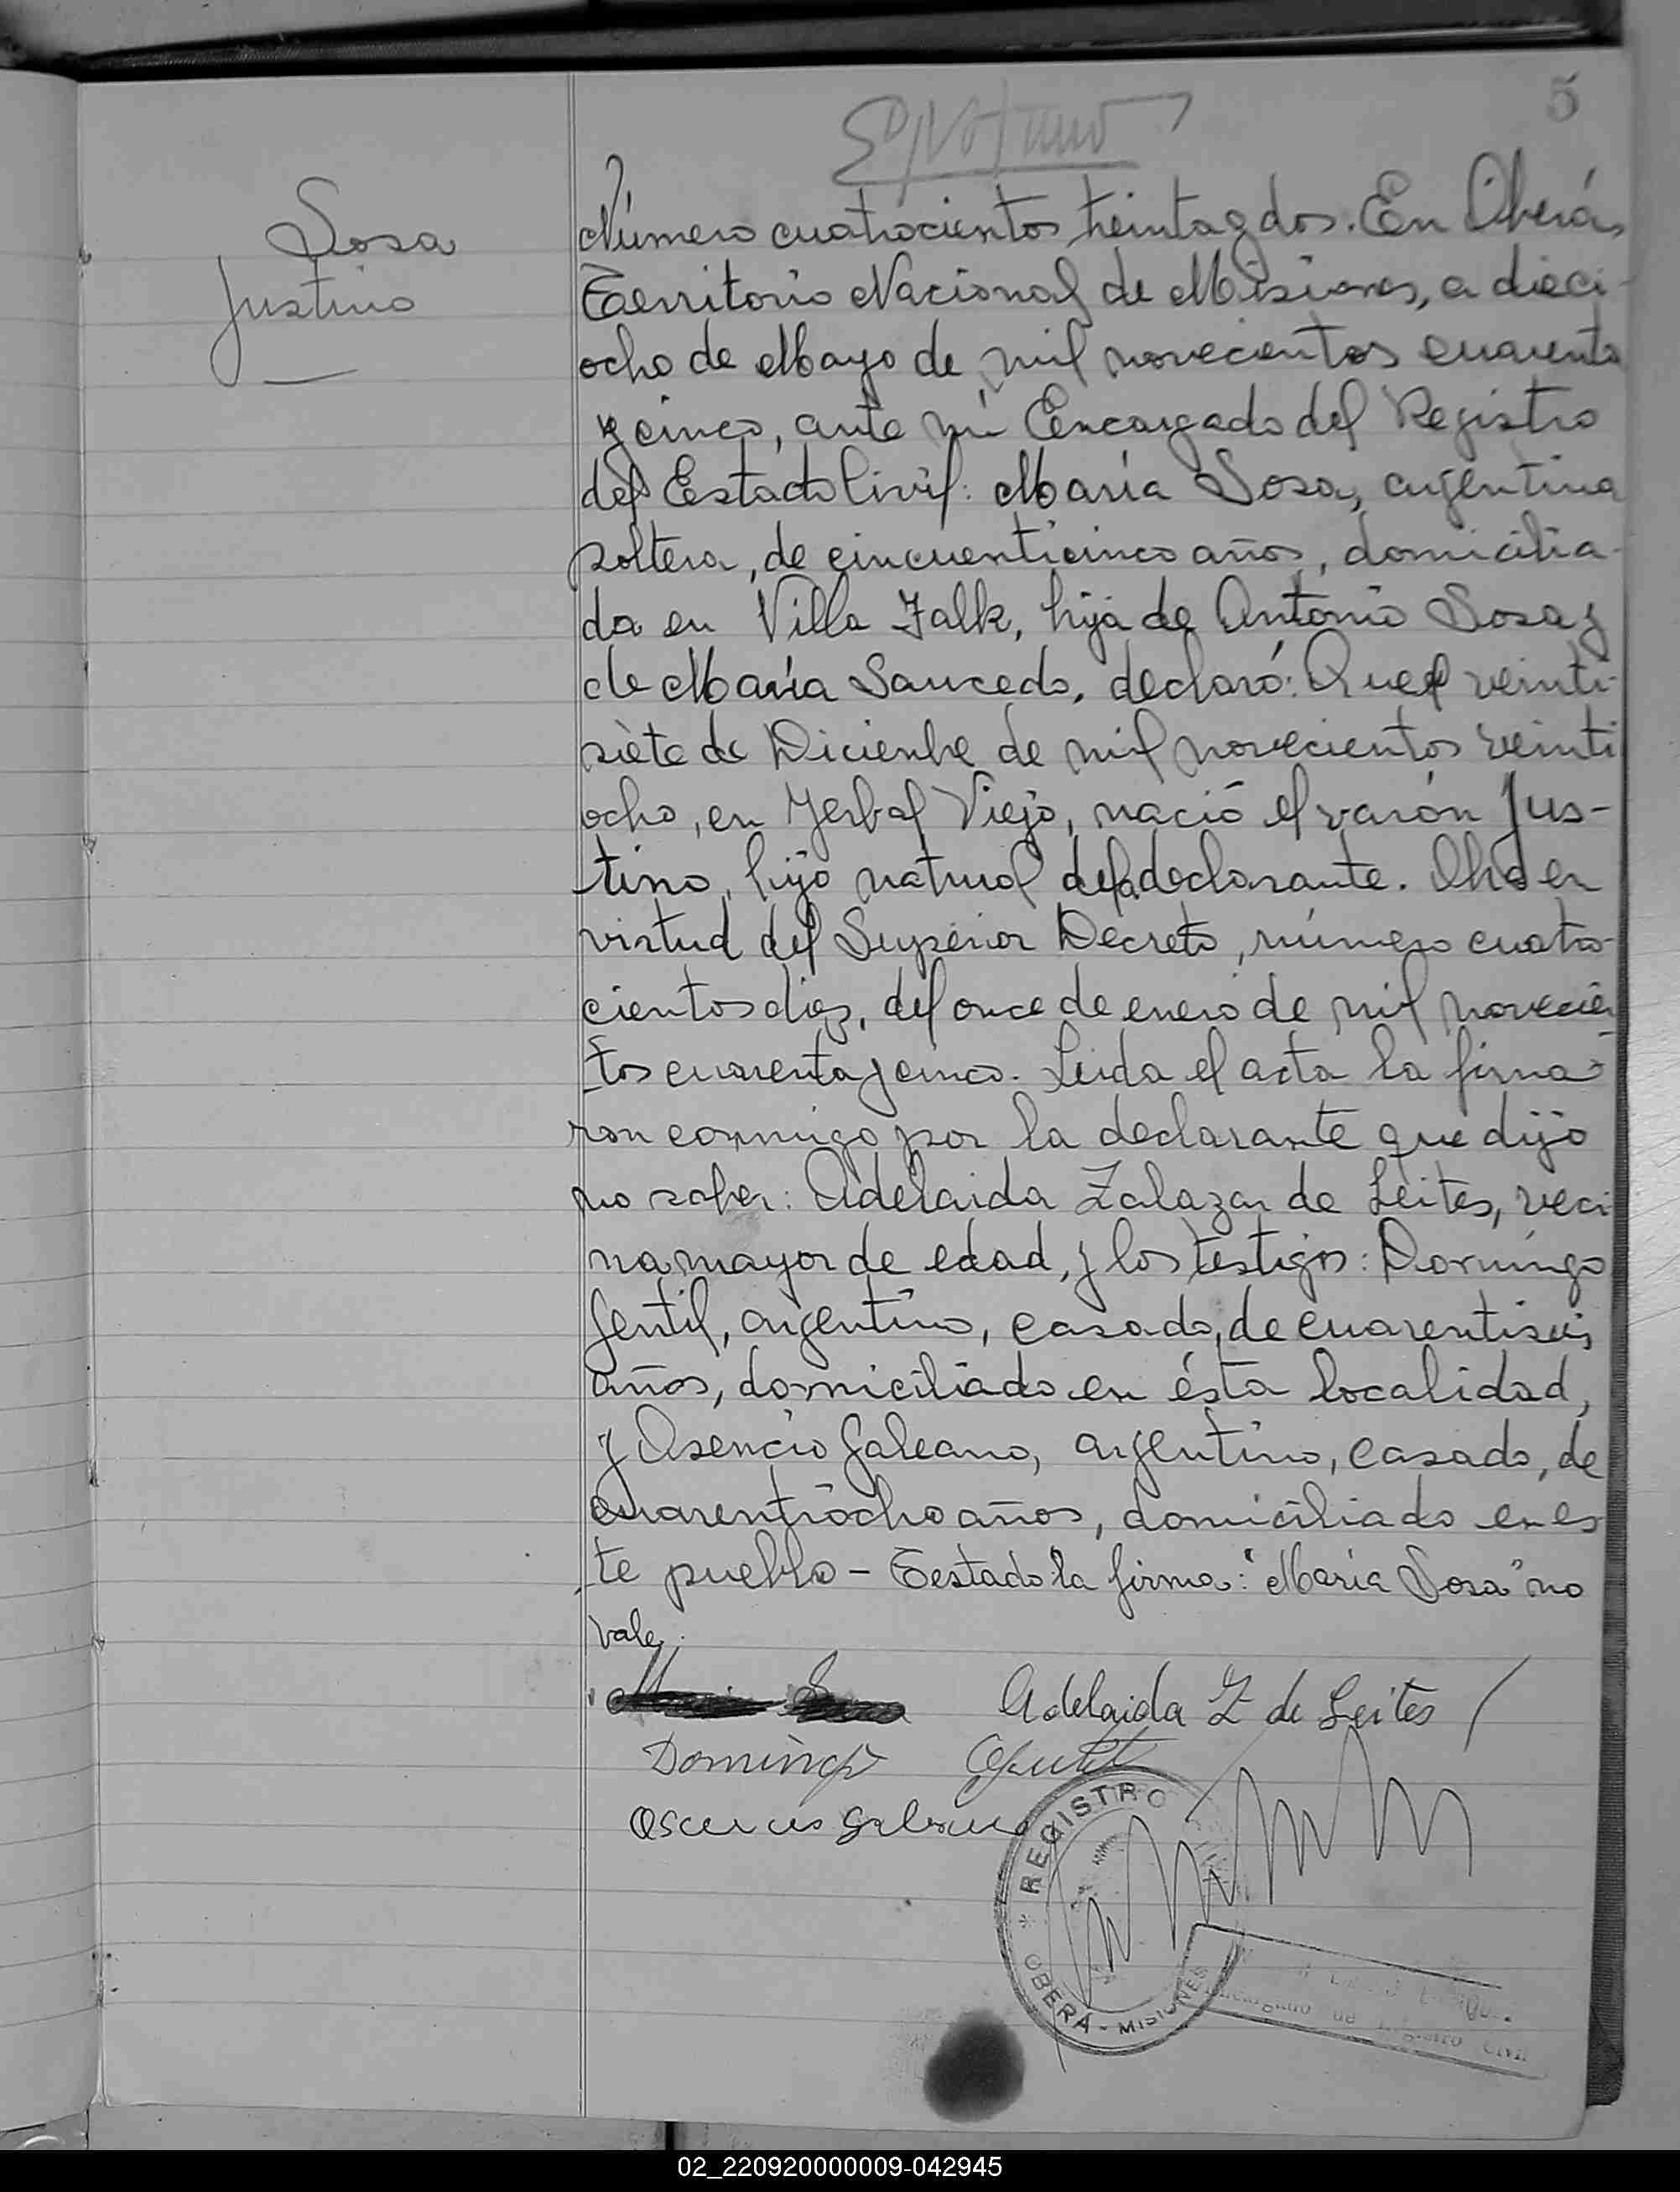 5
Sosa
Justino
Número cuatrocientos treinta y dos. En Oberá,
Territorio Nacional de Misiones, a dieci-
ocho de Mayo de mil novecientos cuarenta
y cinco, ante mí Encargado del Registro
del Estado Civil: María Sosa, argentina
soltera, de cincuenticinco años, domicilia-
da en Villa Falk, hija de Antonio Sosa y
de María Saucedo, declaró: Que el veinti-
siete de Diciembre de mil novecientos veinti
ocho, en Yerbal Viejo, nació el varón Jus-
tino, hijo natural de la declarante. Obra en
virtud del Superior Decreto, número cuatro-
cientos diez, del once de enero de mil novecien
tos cuarenta y cinco. Leida el acta la firma-
ron conmigo por la declarante que dijo
no saber: Adelaida Zalazar de Leites, veci
na mayor de edad, y los testigos: Domingo
Gentil, argentino, casado, de cuarentiseis
años, domiciliado en ésta localidad,
y Asencio Galeano, argentino, casado, de
cuarentiocho años, domiciliado en es
te pueblo - Testado la firma: "María Sosa" no
vale.
Adelaida Z de Leites
Domingo Gentil
Asencio Galeano
REGISTRO
OBERÁ - MISIONES
02_220920000009-042945